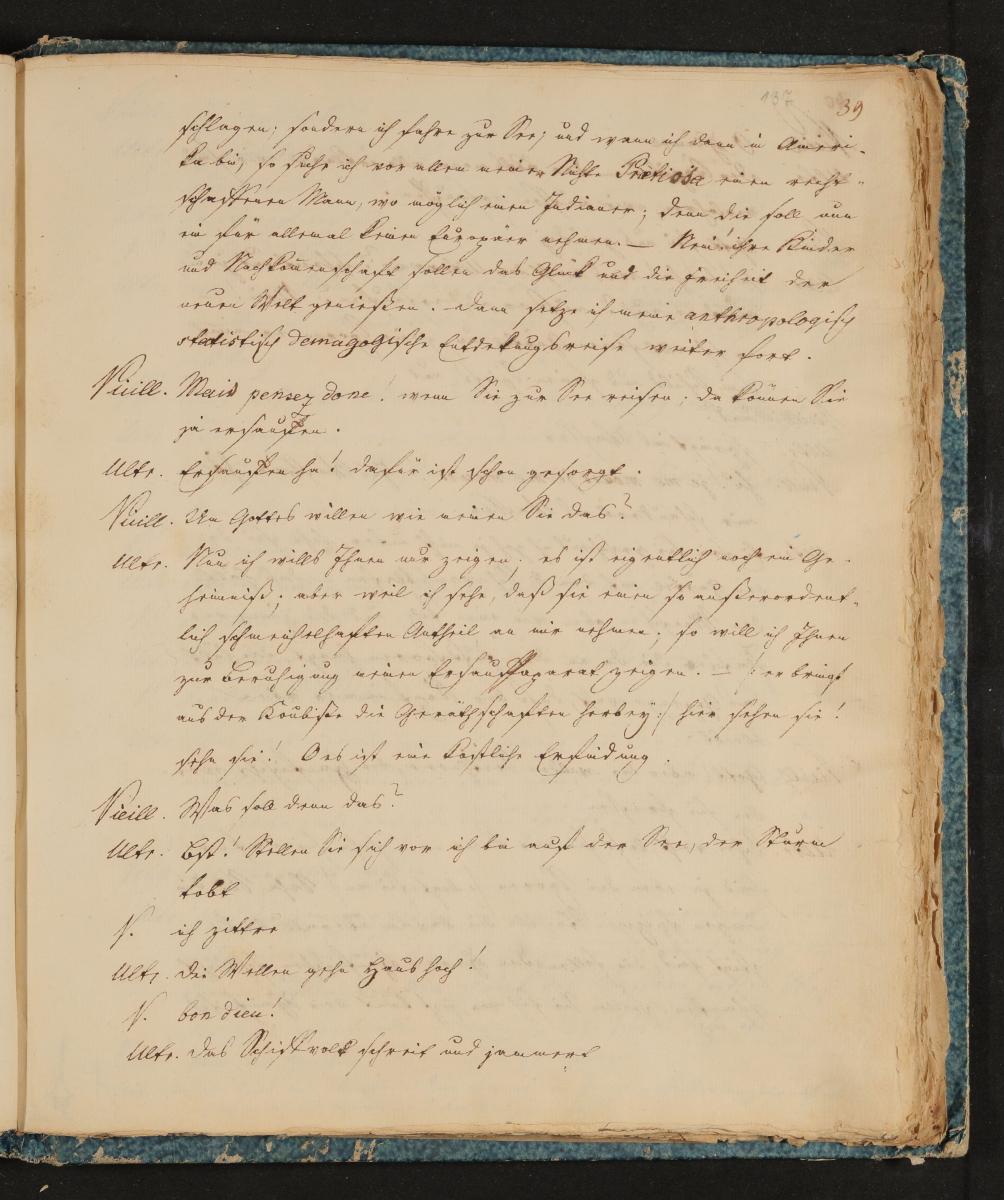 137 39
schlagen; sondern ich fahre zur See; und wenn ich dann in Ameri-
ka bin, so suche ich vor allen meiner Nichte Pretiosa einen recht-
schaffenen Mann, wo möglich einen Indianer; denn die soll nun
ein für allemal keinen Europäer nehmen. — Nein! ihre Kinder
und Nachkommenschaft sollen das Glück und die Freiheit der
neuen Welt genießen. Dann setze ich meine anthropologisch
statistisch demagogische Entdekungsreise weiter fort.
Vieill. Mais pensez donc! wenn Sie zur See reisen; da können Sie
ja ersauffen.
Ultr. Ersauffen ha! dafür ist schon gesorgt.
Vieill. Um Gottes willen wie meinen Sie das?
Ultr. Nun ich wills Ihnen nur zeigen; es ist eigentlich noch ein Ge-
heimniß; aber weil ich sehe, daß sie einen so außerordent-
lich schmeichelhaften Antheil an mir nehmen; so will ich Ihnen
zur Beruhigung meinen Ersauffaparat zeigen. — /: er bringt
aus der Koulisse die Geräthschaften herbey :/ hier sehen sie!
sehn sie! O es ist eine köstliche Erfindung.
Vieill. Was soll denn das?
Ultr. Bst! Stellen Sie sich vor ich bin auf der See, der Sturm
tobt
V. ich zittre
Ultr. die Wellen gehn Haus hoch!
V. bon dieu!
Ultr. das Schiffvolk schreit und jammert